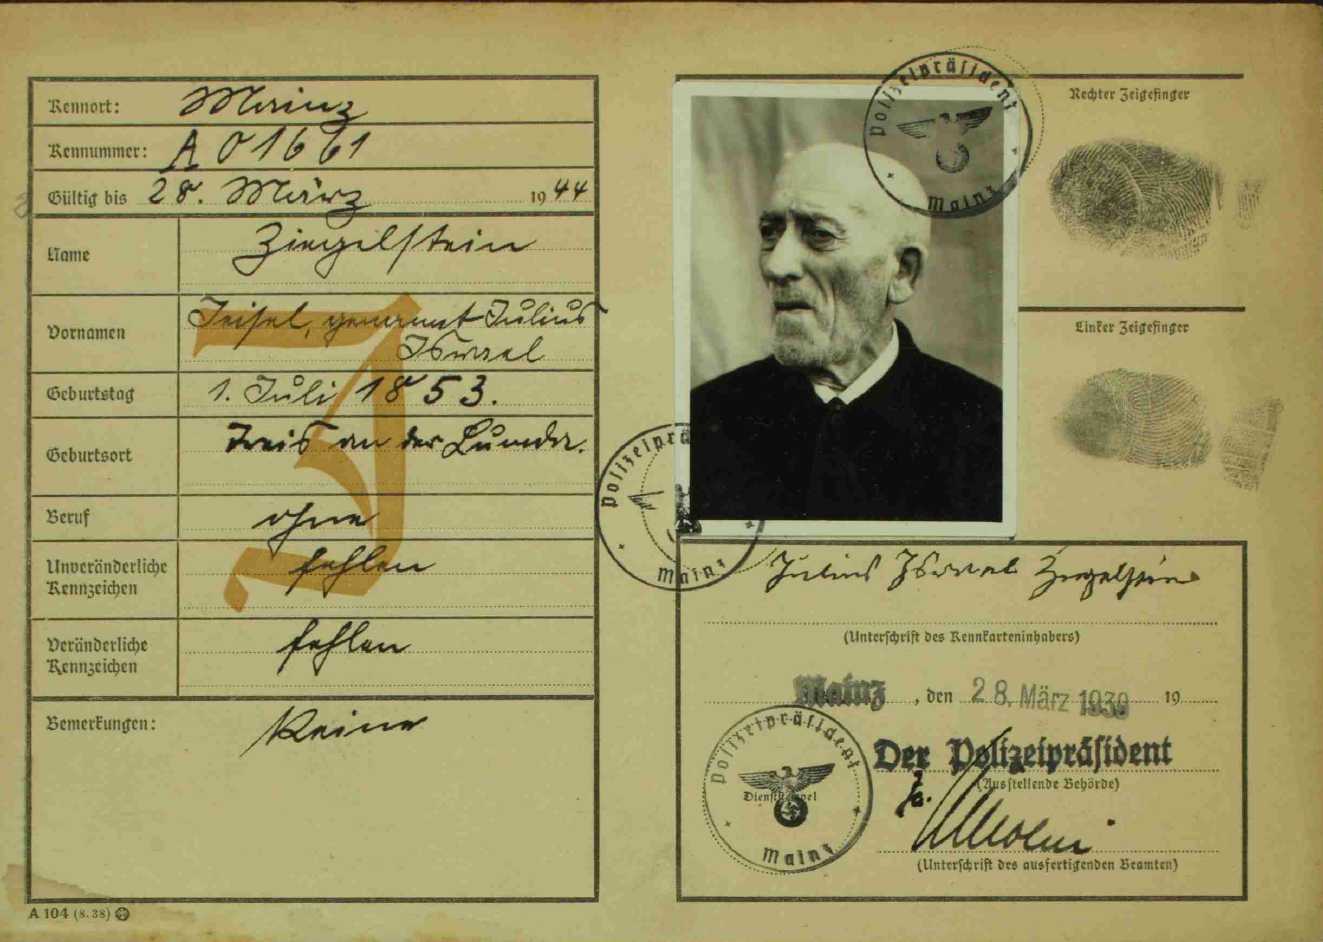 Kennort: Mainz
Kennummer: A 01661
Gültig bis 28. März 1944
Name Ziegelstein
Vornamen Feisel, genannt Julius
Israel
Geburtstag 1. Juli 1853.
Geburtsort Treis an der Lumda.
Beruf ohne
Unveränderliche
Kennzeichen fehlen
Veränderliche
Kennzeichen fehlen
Bemerkungen: Keine
J
A 104 (8. 38)
Polizeipräsident
Mainz
Rechter Zeigefinger
Linker Zeigefinger
Polizeiprä
Mainz
Julius Israel Ziegelstein
(Unterschrift des Kennkarteninhabers)
Mainz, den 28. März 1939 19
Polizeipräsident
Dienststempel
Mainz
Der Polizeipräsident
(Ausstellende Behörde)
(Unterschrift des ausfertigenden Beamten)